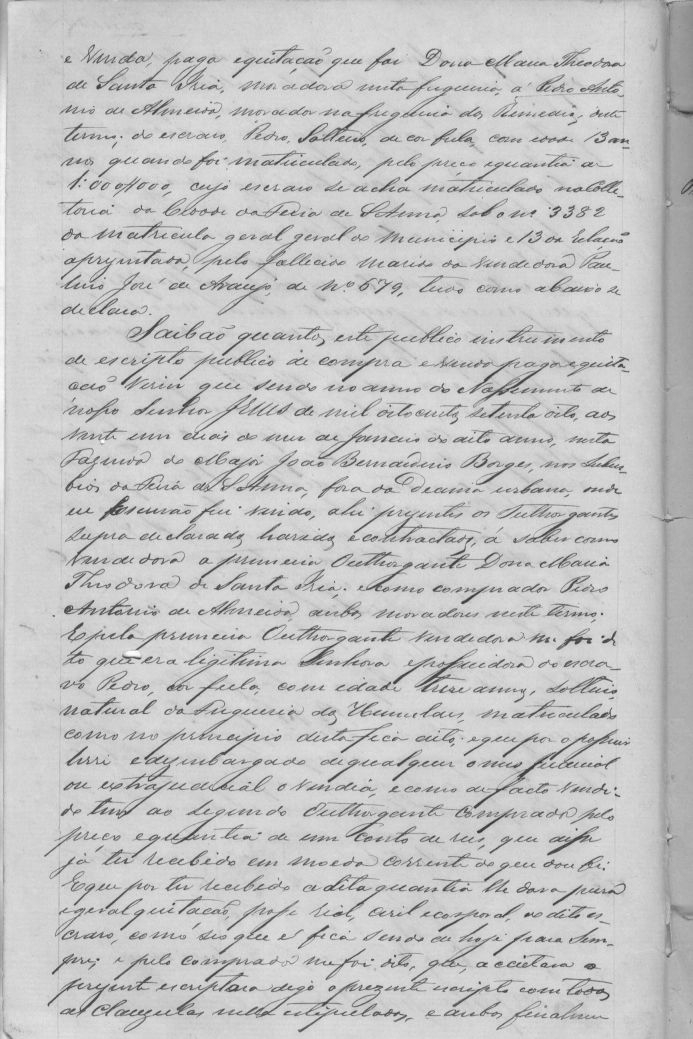 e venda, paga equitação que fas Dona Maria Theodora
de Santa Iria, moradora nesta freguesia, á Pedro Anto-
nio de Almeida, morador na freguesia dos Remedios, deste
termo, do escravo Pedro, Solteiro, de cor fula, com idade 13 an-
nos quando foi matriculado, pelo preço equantia de
1:000$000, cujo escravo se acha matriculado na Colle-
toria da Cidade da Feira de S.Anna, sob o nº 3382
da matricula geral geral do Municipio e 13 da Relação
aprezentada, pelo fallecido marido da Vendedora Pau-
lino José de Araujo, de Nº 579, tudo como abaixo se
declara.
Saibão quantos este publico instrumento
de escripto publico de compra e venda paga equita-
ção virem que sendo no anno do Nascimento de
nosso Senhor JESUS de mil oitocentos setenta oito, aos
vinte um dias do mez de Janeiro do dito anno, nesta
Fazenda do Major João Bernardino Borges, nos Subur-
bios da Feira de S.Anna, fora da Decima urbana, onde
eu Escrivão fui vindo, ahi prezentes os Outhorgantes
supra declarados, havidos e contractados, á saber como
Vendedora a primeira Outhorgante Dona Maria
Theodora de Santa Iria. e como comprador Pedro
Antonio de Almeida ambos moradores neste termo;
E pela primeira Outhorgante Vendedora me foi di-
to que era legitima Senhora epossuidora do escra-
vo Pedro, cor fula, com idade treze annos, Solteiro,
natural da Freguesia dos Humildes, matriculado
como no principio desta fica dito; e que por o possuir
livre e dezembargado de qualquer onus judicial
ou extrajudicial o vendia, e como de facto vendi-
do tem ao segundo Outhorgante comprador pelo
preço e quantia de um conto de reis, que disse
já ter recebido em moeda corrente do que dou fé.
E que por ter recebido a dita quantia lhe dava pura
egeral quitação, posse real, civil e corporal, do dito es-
cravo, como seo que é fica sendo de hoje para sem-
pre; e pelo comprador me foi dito, que acceitava a
prezente escriptura digo o prezente escripto com todas
as clauzulas nella estipuladas, e ambos